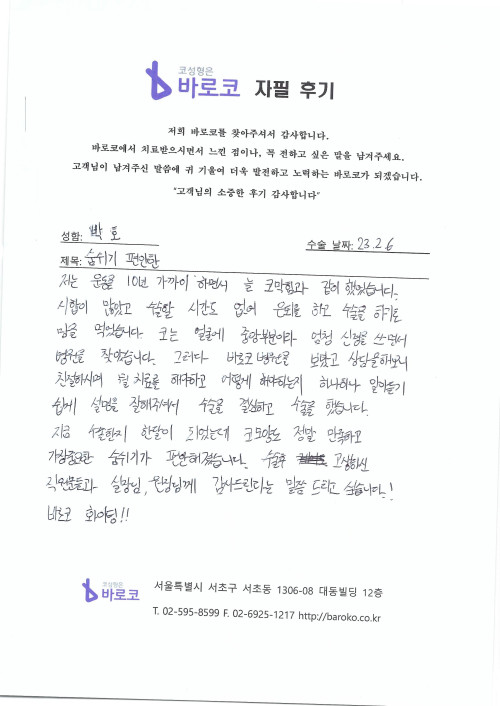 코성형은
바로코 자필 후기
저희 바로코를 찾아주셔서 감사합니다.
바로코에서 치료받으시면서 느낀 점이나, 꼭 전하고 싶은 말을 남겨주세요.
고객님이 남겨주신 말씀에 귀 기울여 더욱 발전하고 노력하는 바로코가 되겠습니다.
"고객님의 소중한 후기 감사합니다"
성함: 박 호
수술 날짜: 23.2.6
제목: 숨쉬기 편안한
저는 운동을 10년 가까이 하면서 늘 코막힘과 같이 했었습니다.
시합이 많았고 수술할 시간도 없어 은퇴를 하고 수술을 하기로
맘을 먹었습니다. 코는 얼굴에 중앙부분이라 엄청 신경을 쓰면서
병원을 찾았습니다. 그러다 바로코 병원을 보았고 상담을해보니
친절하시며 뭘 치료를 해야하고 어떻게 해야하는지 하나하나 알아듣기
쉽게 설명을 잘해주셔서 수술을 결심하고 수술을 했습니다.
지금 수술한지 한달이 되었는데 코모양도 정말 만족하고
가장중요한 숨쉬기가 편안해졌습니다. 수술후 고생하신
직원분들과 실장님, 원장님께 감사드린다는 말씀 드리고 싶습니다.!
바로코 화이팅!!
코성형은
바로코
서울특별시 서초구 서초동 1306-08 대동빌딩 12층
T. 02-595-8599 F. 02-6925-1217 http://baroko.co.kr